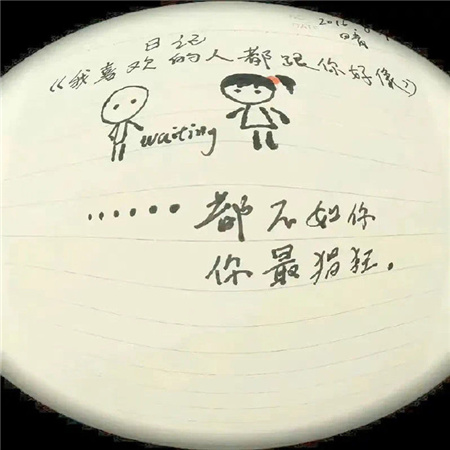 日记
《我喜欢的人都跟你好像》
waiting
······都不如你
你最猖狂。